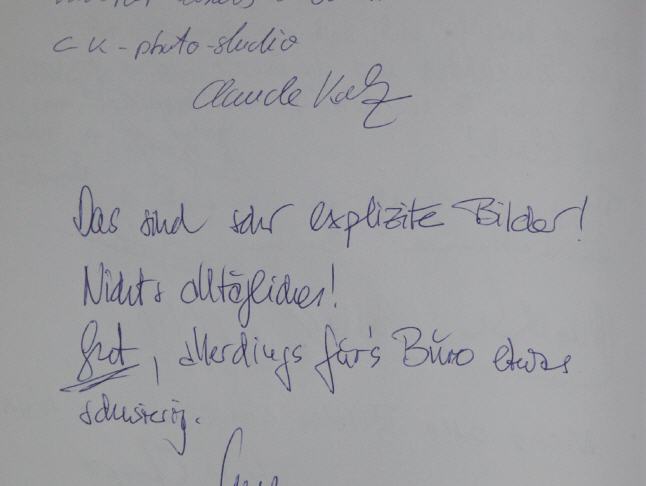 ck-photo-studio
Claude Katz
Das sind sehr explizite Bilder!
Nichts alltägliches!
Gut, allerdings für's Büro etwas
schwierig.